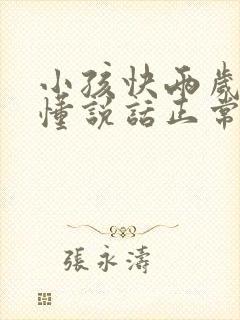 小孩快兩歲
懂說話正常
張永濤